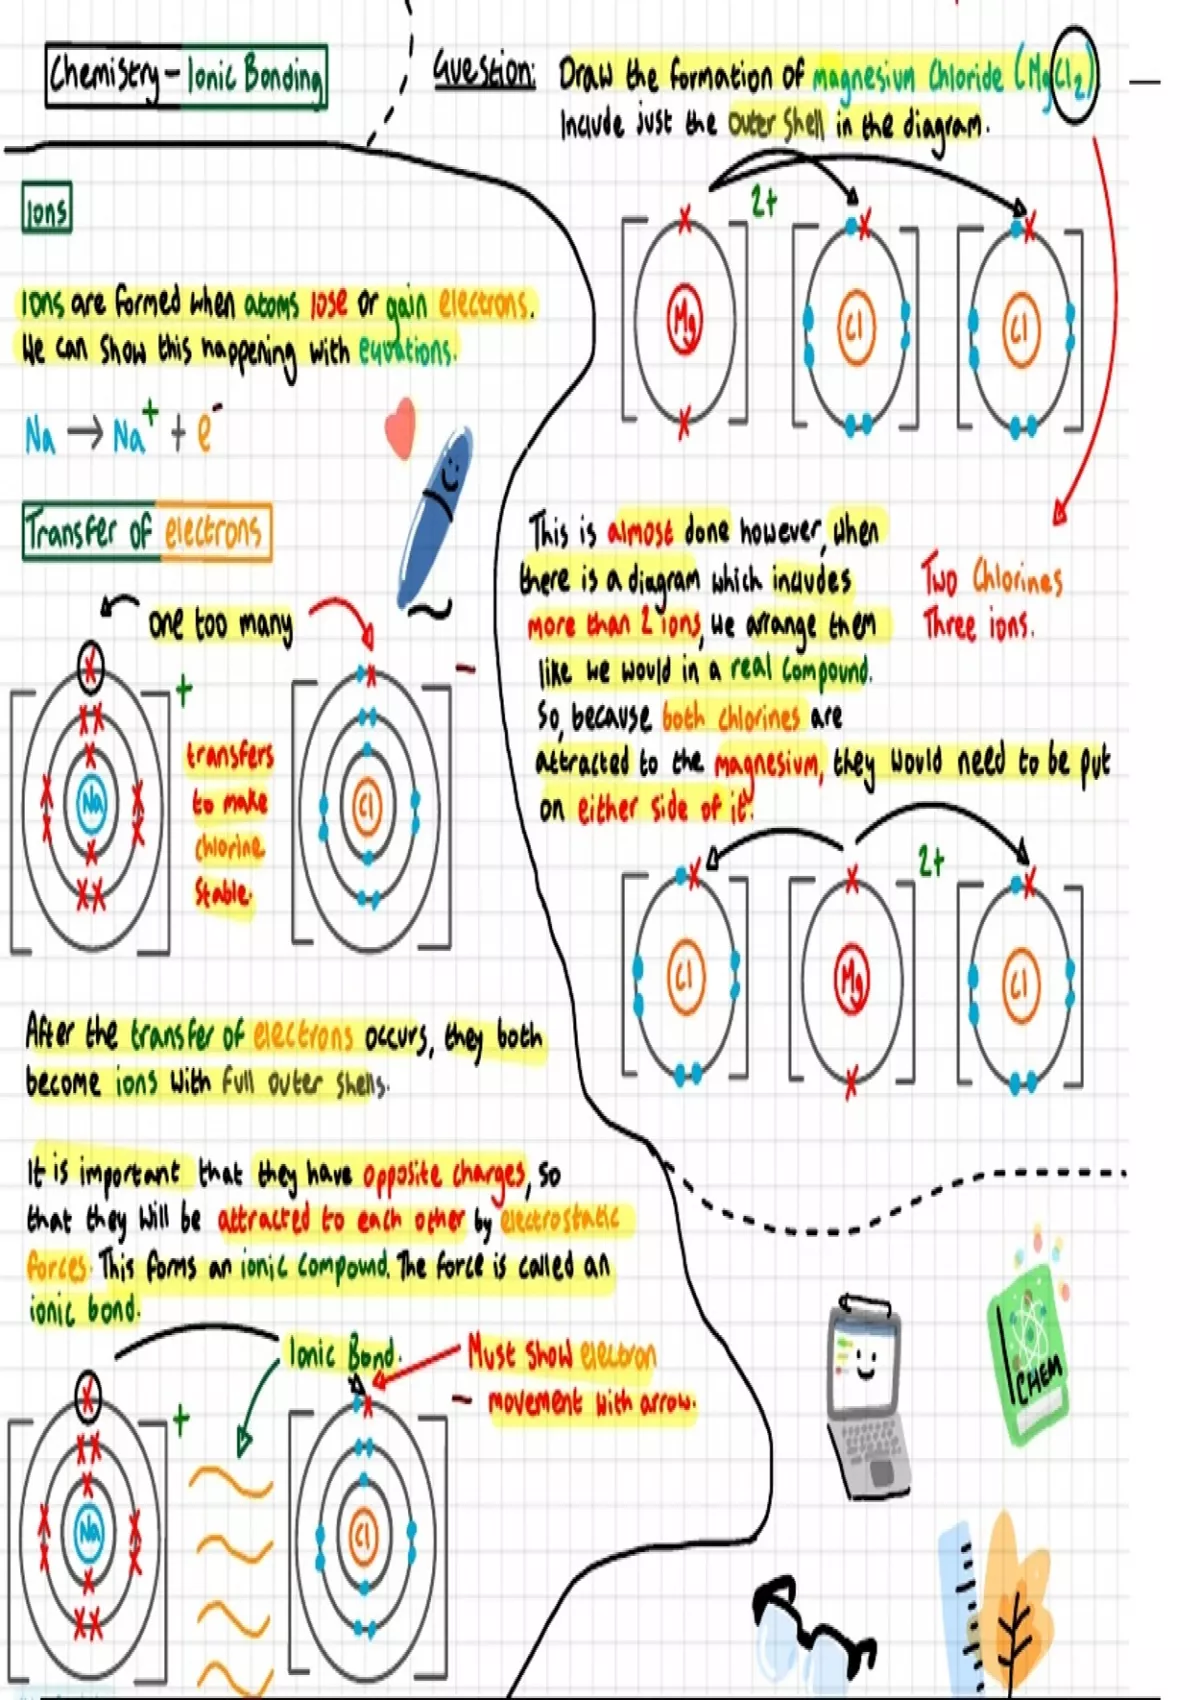 Chemistry - Ionic Bonding
Ions
Ions are formed when atoms lose or gain electrons.
We can show this happening with equations.
Na → Na⁺ + e⁻
Transfer of electrons
one too many
+
-
transfers
to make
chlorine
stable.
Na
Cl
After the transfer of electrons occurs, they both
become ions with full outer shells.
It is important that they have opposite charges, so
that they will be attracted to each other by electrostatic
forces. This forms an ionic compound. The force is called an
ionic bond.
Ionic Bond.
Must show electron
movement with arrow.
+
-
Na
Cl
Question: Draw the formation of magnesium Chloride (MgCl₂)
Include just the outer shell in the diagram.
2+
Mg
Cl
Cl
This is almost done however, when
there is a diagram which includes
more than 2 ions, we arrange them
like we would in a real compound.
So, because both chlorines are
attracted to the magnesium, they would need to be put
on either side of it.
Two Chlorines
Three ions.
2+
Cl
Mg
Cl
CHEM